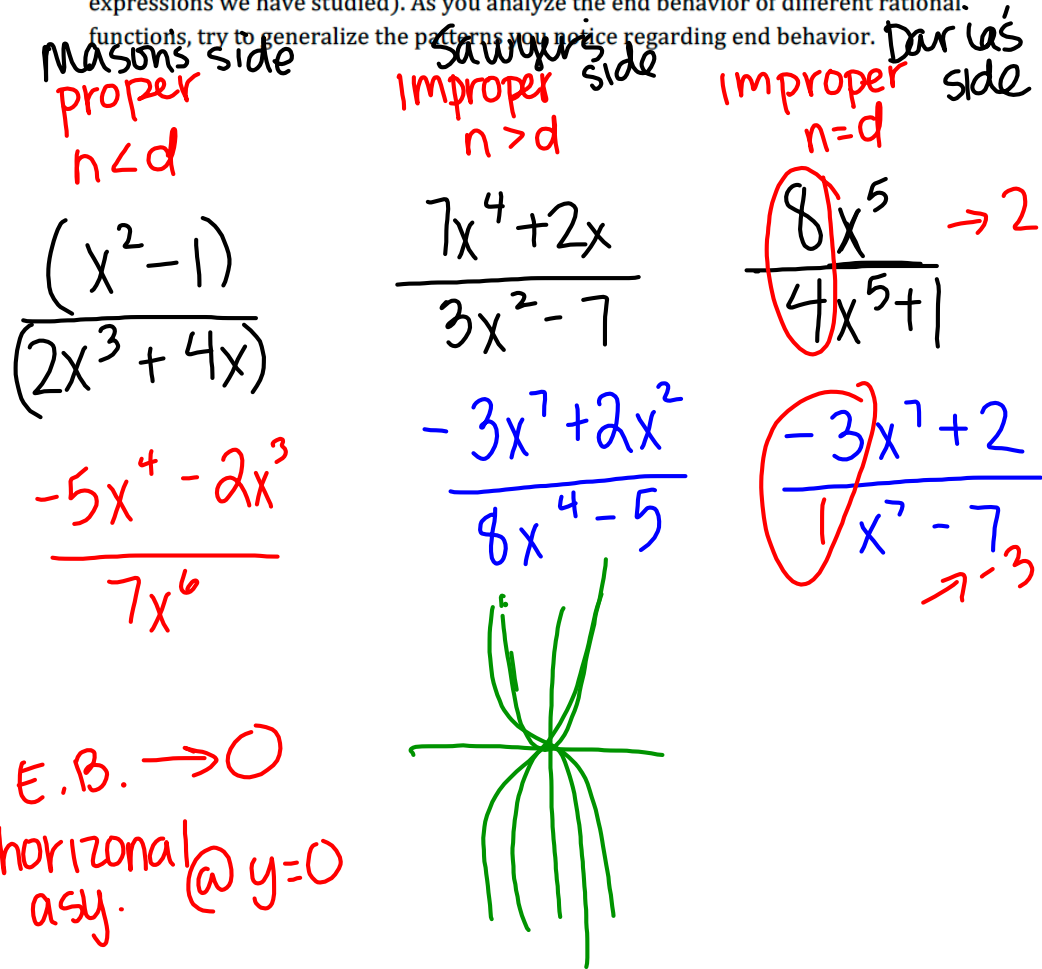 expressions we have studied). As you analyze the end behavior of different rational
functions, try to generalize the patterns you notice regarding end behavior.
Mason's side
proper
n<d
(x²-1)
(2x³+4x)
-5x⁴-2x³
7x⁶
E.B. →0
horizonal
asy. @ y=0
Sawyer's
side
Improper
n>d
7x⁴+2x
3x²-7
-3x⁷+2x²
8x⁴-5
Darcla's
side
Improper
n=d
8x⁵ →2
4x⁵+1
-3x⁷+2
1x⁷-7
→-3